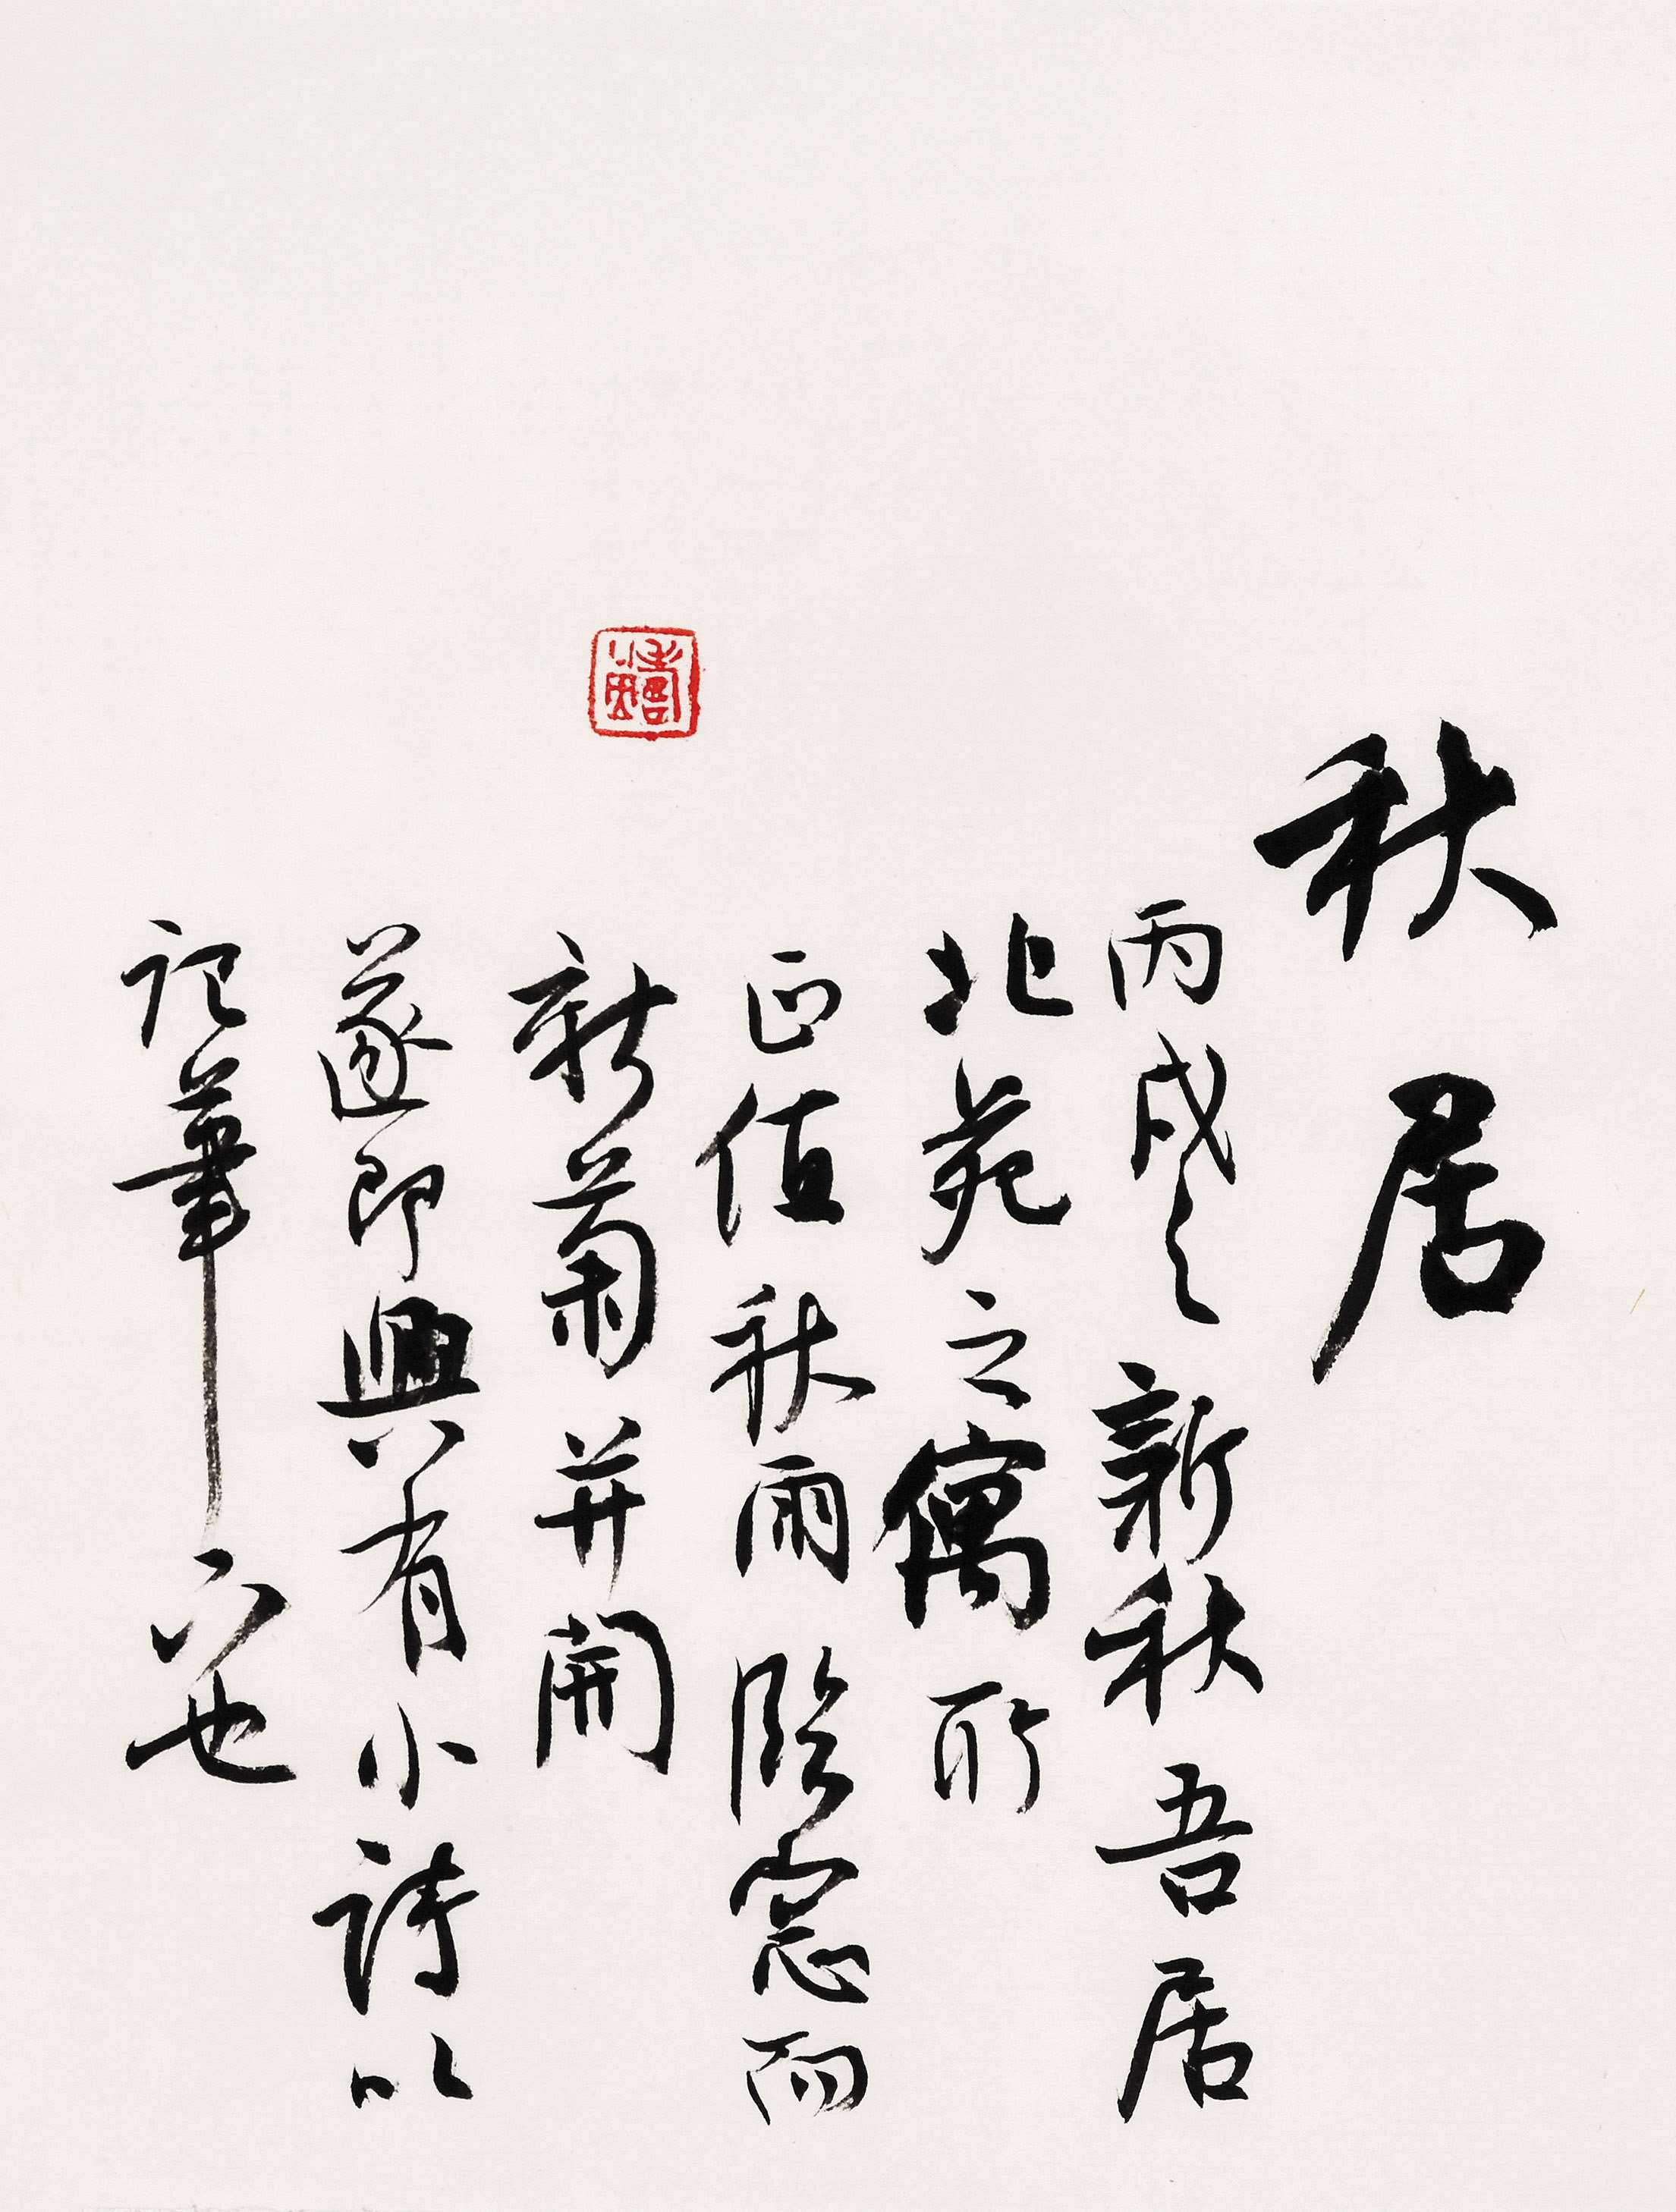 秋居
丙戌之新秋吾居
北苑之寓所
正值秋雨臨窓而
新菊并開
遂即興有小詩以
記筆也